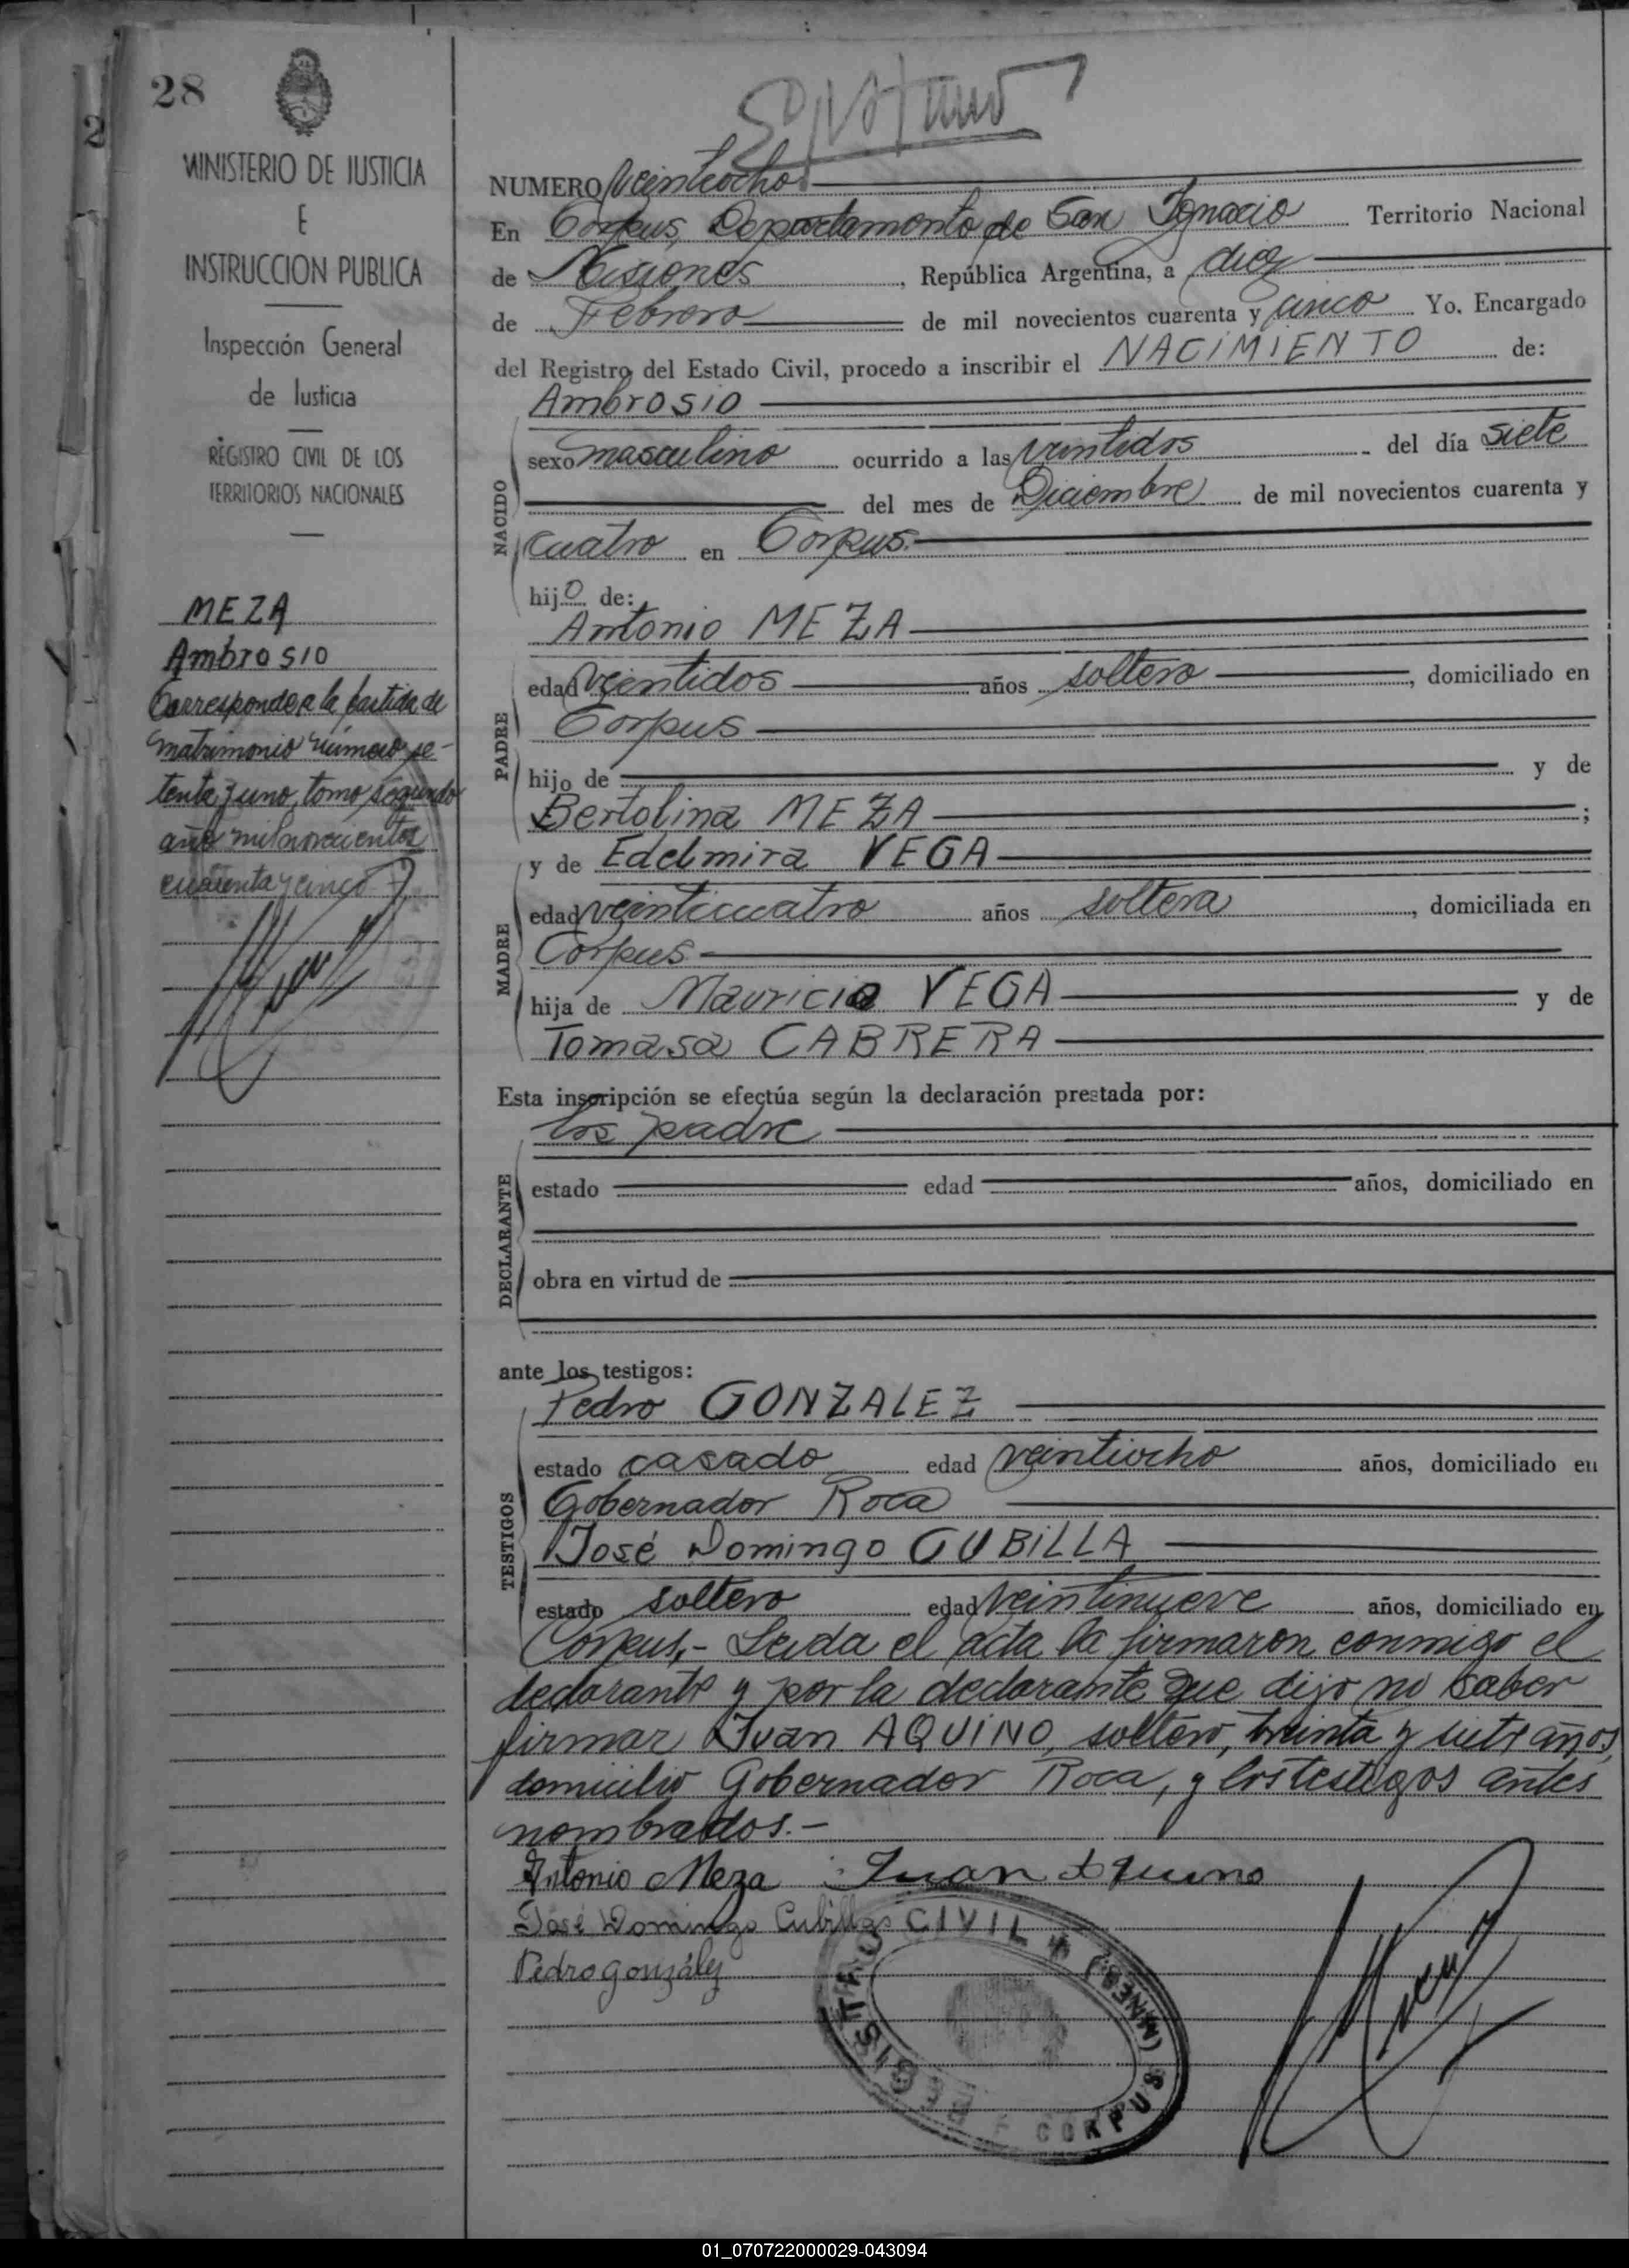 28
2
MINISTERIO DE JUSTICIA
E
INSTRUCCION PUBLICA
Inspección General
de Justicia
REGISTRO CIVIL DE LOS
TERRITORIOS NACIONALES
MEZA
Ambrosio
Corresponde a la partida de
matrimonio número se-
tenta y uno, tomo segundo
año mil novecientos
cuarenta y cinco
NUMERO Veintiocho.
En Corpus, Departamento de San Ignacio Territorio Nacional
de Misiones, República Argentina, a diez
de Febrero de mil novecientos cuarenta y cinco Yo, Encargado
del Registro del Estado Civil, procedo a inscribir el NACIMIENTO de:
Ambrosio
sexo masculino ocurrido a las veintidos del día siete
del mes de Diciembre de mil novecientos cuarenta y
cuatro en Corpus.
NACIDO
hijo de:
Antonio MEZA
edad veintidos años soltero, domiciliado en
Corpus
PADRE
hijo de y de
Bertolina MEZA;
y de Edelmira VEGA
edad veinticuatro años soltera, domiciliada en
Corpus
MADRE
hija de Mauricio VEGA y de
Tomasa CABRERA
Esta inscripción se efectúa según la declaración prestada por:
los padre
DECLARANTE
estado edad años, domiciliado en
obra en virtud de
ante los testigos:
Pedro GONZALEZ
estado casado edad veintiocho años, domiciliado en
Gobernador Roca
TESTIGOS
José Domingo CUBILLA
estado soltero edad veintinueve años, domiciliado en
Corpus.- Leida el acta la firmaron conmigo el
declarante y por la declarante que dijo no saber
firmar Juan AQUINO, soltero, treinta y siete años,
domicilio Gobernador Roca, y los testigos antes
nombrados.-
Antonio Meza Juan Aquino
José Domingo Cubillas
Pedro González
REGISTRO CIVIL CORPUS (MNES)
01_070722000029-043094